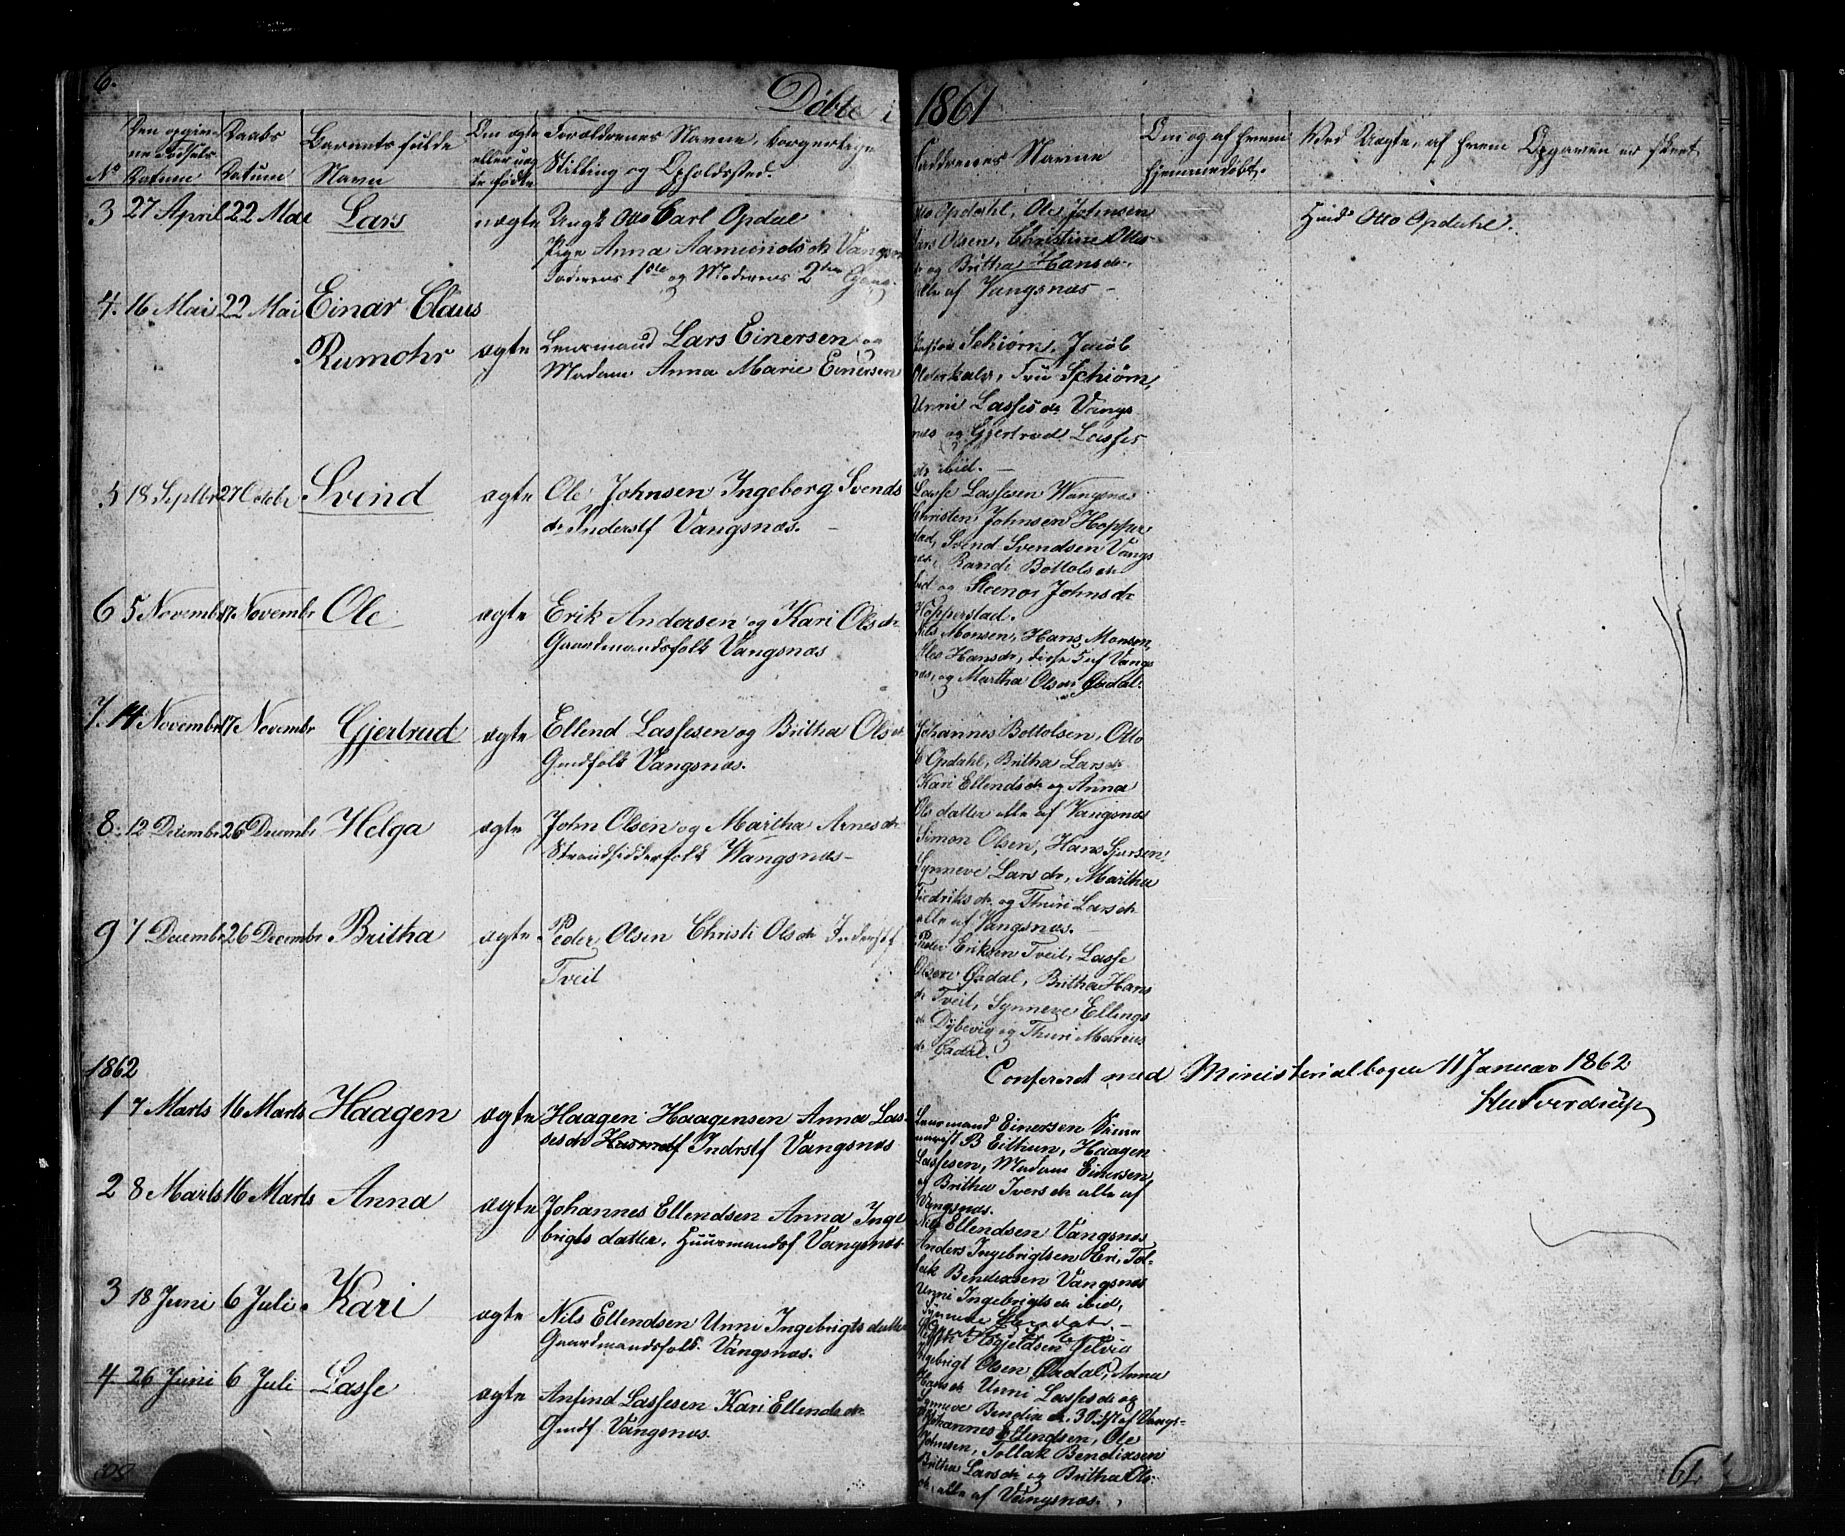 6.
Döbte i 1861
Den opgivne Fødsels Datum
Daabs Datum
Barnets fulde Navn
Om ægte eller uægte fødte
Forældrenes Navne, borgerlige
Stilling og Opholdssted.
Faddrenes Navne
Om og af hvem hjemmedøbt.
Ved Uægte, af hvem Opgaven er skeet
No
3 27 April 22 Mai Lars uægte Ungk Otto Carl Opdal
Pige Anna Aamundsdr Vangsn
Faderens 1ste og Moderens 2den Gang.
Otto Opdahl, Ole Johnsen
Lars Olsen, Christine Otto
dr og Britha Hansdr,
alle af Vangsnæs -
Hind Otto Opdahl.
4. 16 Mai 22 Mai Einar Claus
Rumohr ægte Lensmand Lars Einersen og
Madam Anna Marie Einersen
Schiørn, Jacob
Fru Schiørn,
Unni Lassesdr Vangs
næs og Gjertrud Lasses
dr ibid. -
5 18 Septbr 27 Octobr Svend ægte Ole Johnsen Ingeborg Svends
dr Inderstf Vangsnæs. -
Lasse Lassesen Wangsnæs
Christen Johnsen Hopper
stad, Svend Svendsen Vangs
næs, Randi Bottolsdr
ibid og Johnsdr
Hopperstad.
6 5 Novembr 17 Novembr Ole ægte Erik Andersen og Kari Olsdr
Gaardmandsfolk Vangsnæs
Nils Monsen, Hans Monsen,
Hansdr, disse af Vangs
næs, og Martha Olsdr Opdal.
7. 14 Novembr 17 Novembr Gjertrud ægte Ellend Lassesen og Britha Olsdr
Gmdfolk Vangsnæs.
Johannes Bottolsen, Otto
C Opdahl, Britha Larsdr
Kari Ellendsdr og Anna
Olsdatter alle af Vangsnæs
8. 12 Decembr 26 Decembr Helga ægte John Olsen og Martha Arnesdr
Strandsidderfolk Wangsnæs -
Simon Olsen, Hans Sjursen,
Synneve Larsdr, Martha
Fredriksdr og Thuri Larsdr
alle af Vangsnæs. -
9 7 Decembr 26 Decembr Britha ægte Peder Olsen Christi Olsdr Inderstf
Tveit
Peder Eriksen Tveit, Lasse
Olsen Opdal, Britha Hans
dr Tveit, Synneve Ellings
dr Dybevig og Thuri Marcus
dr Opdal.
Confereret med Ministerialbogen 11 Januar 1862
Sverdrup
1862
1 7 Marts 16 Marts Haagen ægte Haagen Haagensen Anna Las-
sesdr Indrstf Vangsnæs
Lensmand Einersen
B Eithun, Haagen
Lassesen, Madam Einersen,
og Britha Iversdr alle af
Vangsnæs.
2 8 Marts 16 Marts Anna ægte Johannes Ellendsen Anna Inge
brigtsdatter. Huusmandsf Vangsnæs.
Nils Ellendsen Vangsnæs
Anders Ingebrigtsen Eri, Tol-
lak Bendixsen Vangsnæs
Unni Ingebrigtsdr ibid,
3 18 Juni 6 Juli Kari ægte Nils Ellendsen Unni Ingebrigtsdatter
Gaardmandsfolk Vangsnæs.
Ingebrigt Olsen Opdal, Anna
Hansdr Unni Lassesdr og
Synneve Bendixdr, 3 Sidst af Vangs-
4 26 Juni 6 Juli Lasse ægte Anfind Lassesen Kari Ellendsdr
Gmdf. Vangsnæs.
Johannes Ellendsen, Ole
Johnsen, Tollak Bendixsen
Britha Larsdr og Britha Ols-
dr, alle af Vangsnæs.